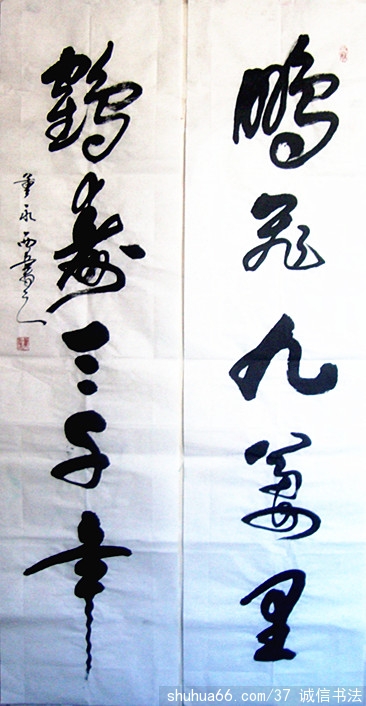 鵬飛九萬里
鶴壽三千年
shuhua66.com/37 诚信书法